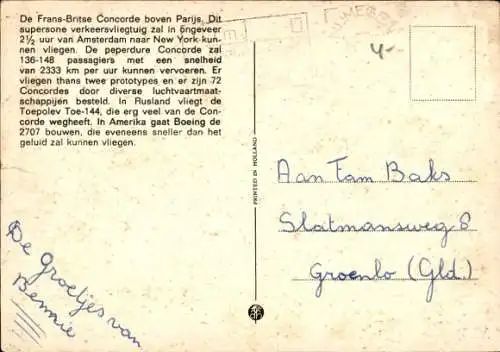 De Frans-Britse Concorde boven Parijs. Dit
supersone verkeersvliegtuig zal in ongeveer
2½ uur van Amsterdam naar New York kun-
nen vliegen. De peperdure Concorde zal
136-148 passagiers met een snelheid
van 2333 km per uur kunnen vervoeren. Er
vliegen thans twee prototypes en er zijn 72
Concordes door diverse luchtvaartmaat-
schappijen besteld. In Rusland vliegt de
Toepolev Toe-144, die erg veel van de Con-
corde wegheeft. In Amerika gaat Boeing de
2707 bouwen, die eveneens sneller dan het
geluid zal kunnen vliegen.
De Groetjes van
Bennie
PRINTED IN HOLLAND
NIJMEGEN
4-
Aan Fam Baks
Slatmansweg 8
Groenlo (Gld.)